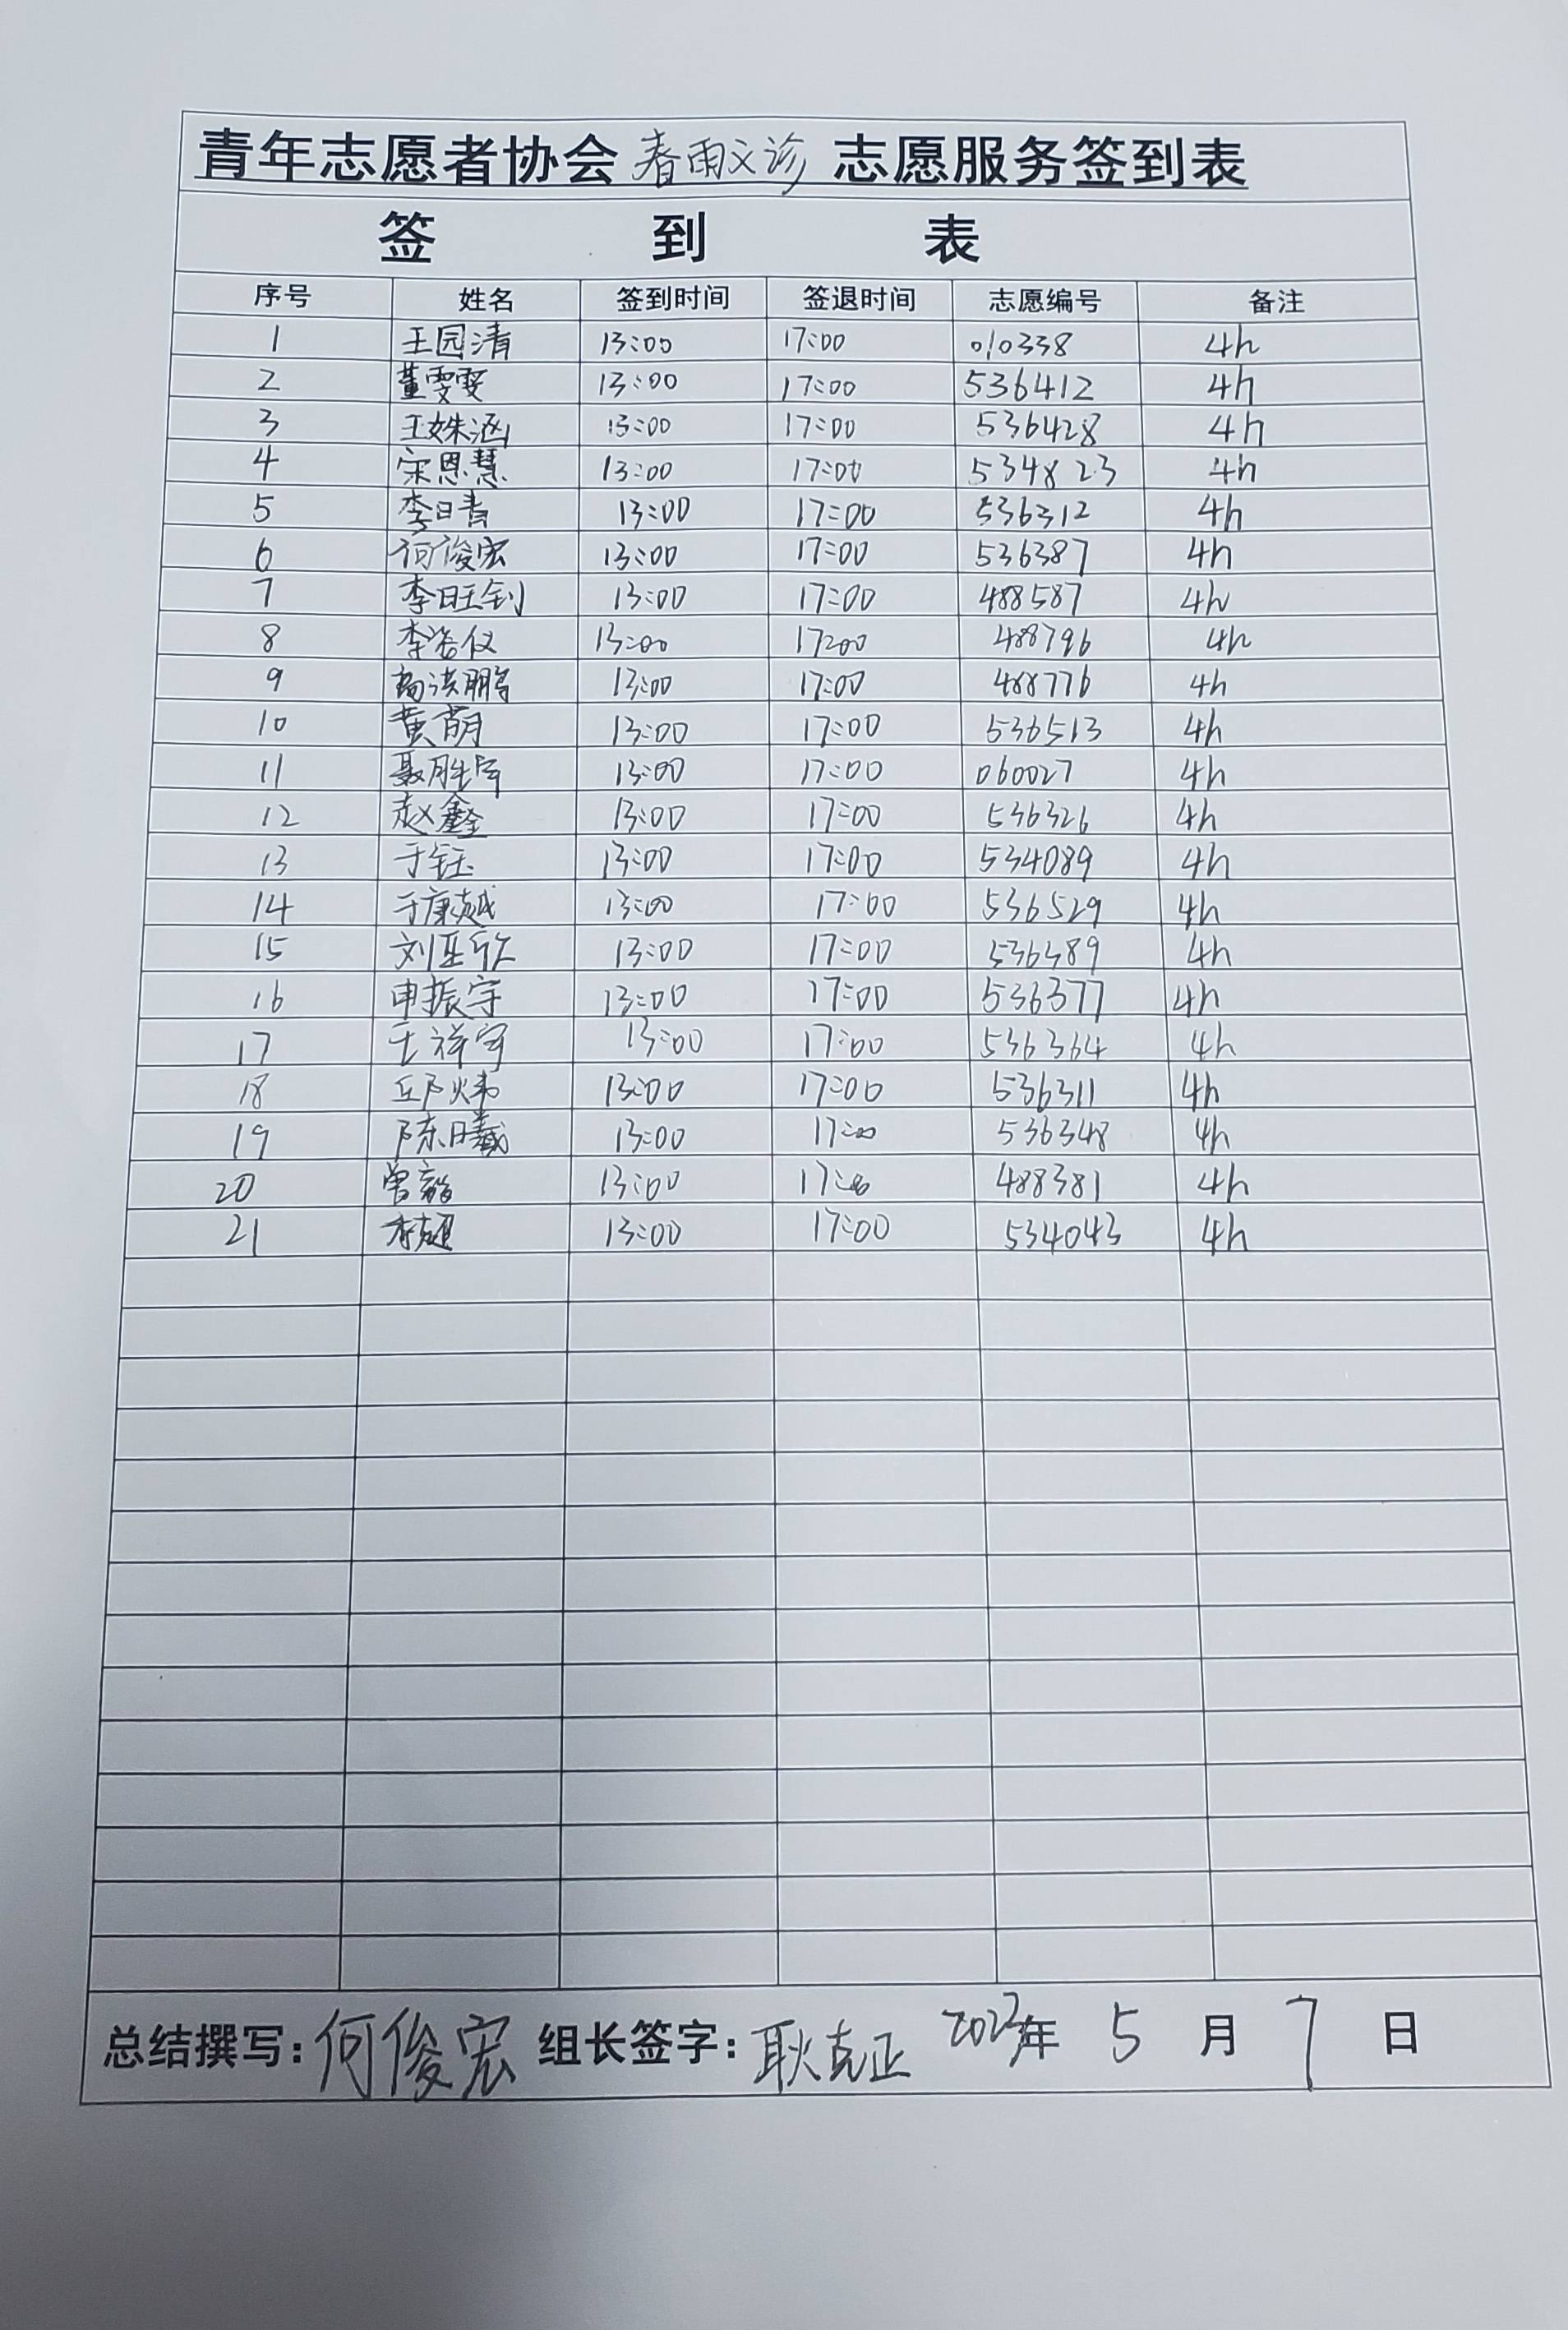 青年志愿者协会春雨义诊志愿服务签到表
签 到 表
序号 姓名 签到时间 签退时间 志愿编号 备注
1 王园清 13:00 17:00 010338 4h
2 董雯雯 13:00 17:00 536412 4h
3 王姝涵 13:00 17:00 536428 4h
4 宋恩慧 13:00 17:00 534823 4h
5 李日青 13:00 17:00 536312 4h
6 何俊宏 13:00 17:00 536387 4h
7 李旺钊 13:00 17:00 488587 4h
8 13:00 17:00 488796 4h
9 13:00 17:00 488776 4h
10 黄萌 13:00 17:00 536513 4h
11 聂胜宇 13:00 17:00 060027 4h
12 赵鑫 13:00 17:00 536326 4h
13 于钰 13:00 17:00 534089 4h
14 于康越 13:00 17:00 536529 4h
15 刘亚欣 13:00 17:00 4h
16 申振宇 13:00 17:00 536377 4h
17 王祥宇 13:00 17:00 536364 4h
18 邱炜 13:00 17:00 536311 4h
19 陈曦 13:00 17:00 536348 4h
20 13:00 17:00 488381 4h
21 13:00 17:00 534043 4h
总结撰写:何俊宏 组长签字:耿克正 2023年 5 月 7 日